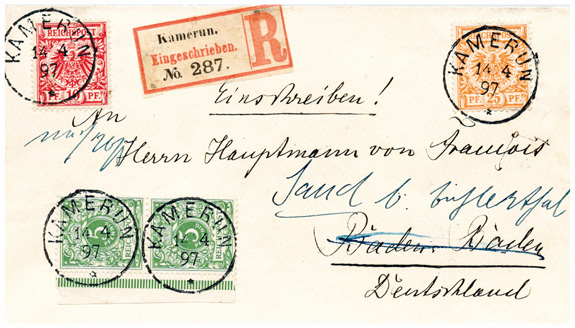 KAMERUN
14 4
97
*
REICHSPOST
PF. 10 PF.
Kamerun.
Eingeschrieben.
No. 287.
R
KAMERUN
14 4
97
*
PF. 25 PF.
Einschreiben!
An
Herrn Hauptmann von François
Sand b. Bühlerthal
Baden-Baden
Deutschland
KAMERUN
14 4
97
*
5
KAMERUN
14 4
97
*
5